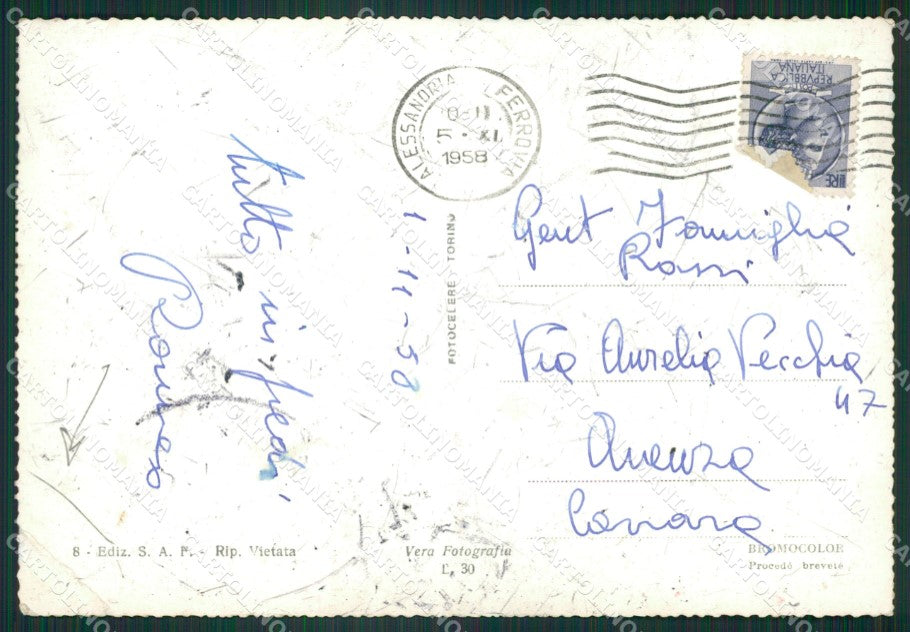 ALESSANDRIA FERROVIA
5 · XI
1958
REPVBBLICA
ITALIANA
LIRE
tutto
Romeo
1-11-58
FOTOCELERE TORINO
Gent Famiglia
Rossi
Via Aurelia Vecchia
47
Avenza
Carrara
8 - Ediz. S. A. F. - Rip. Vietata
Vera Fotografia
L. 30
BROMOCOLOR
Procedé breveté
CARTOLINOMANIA